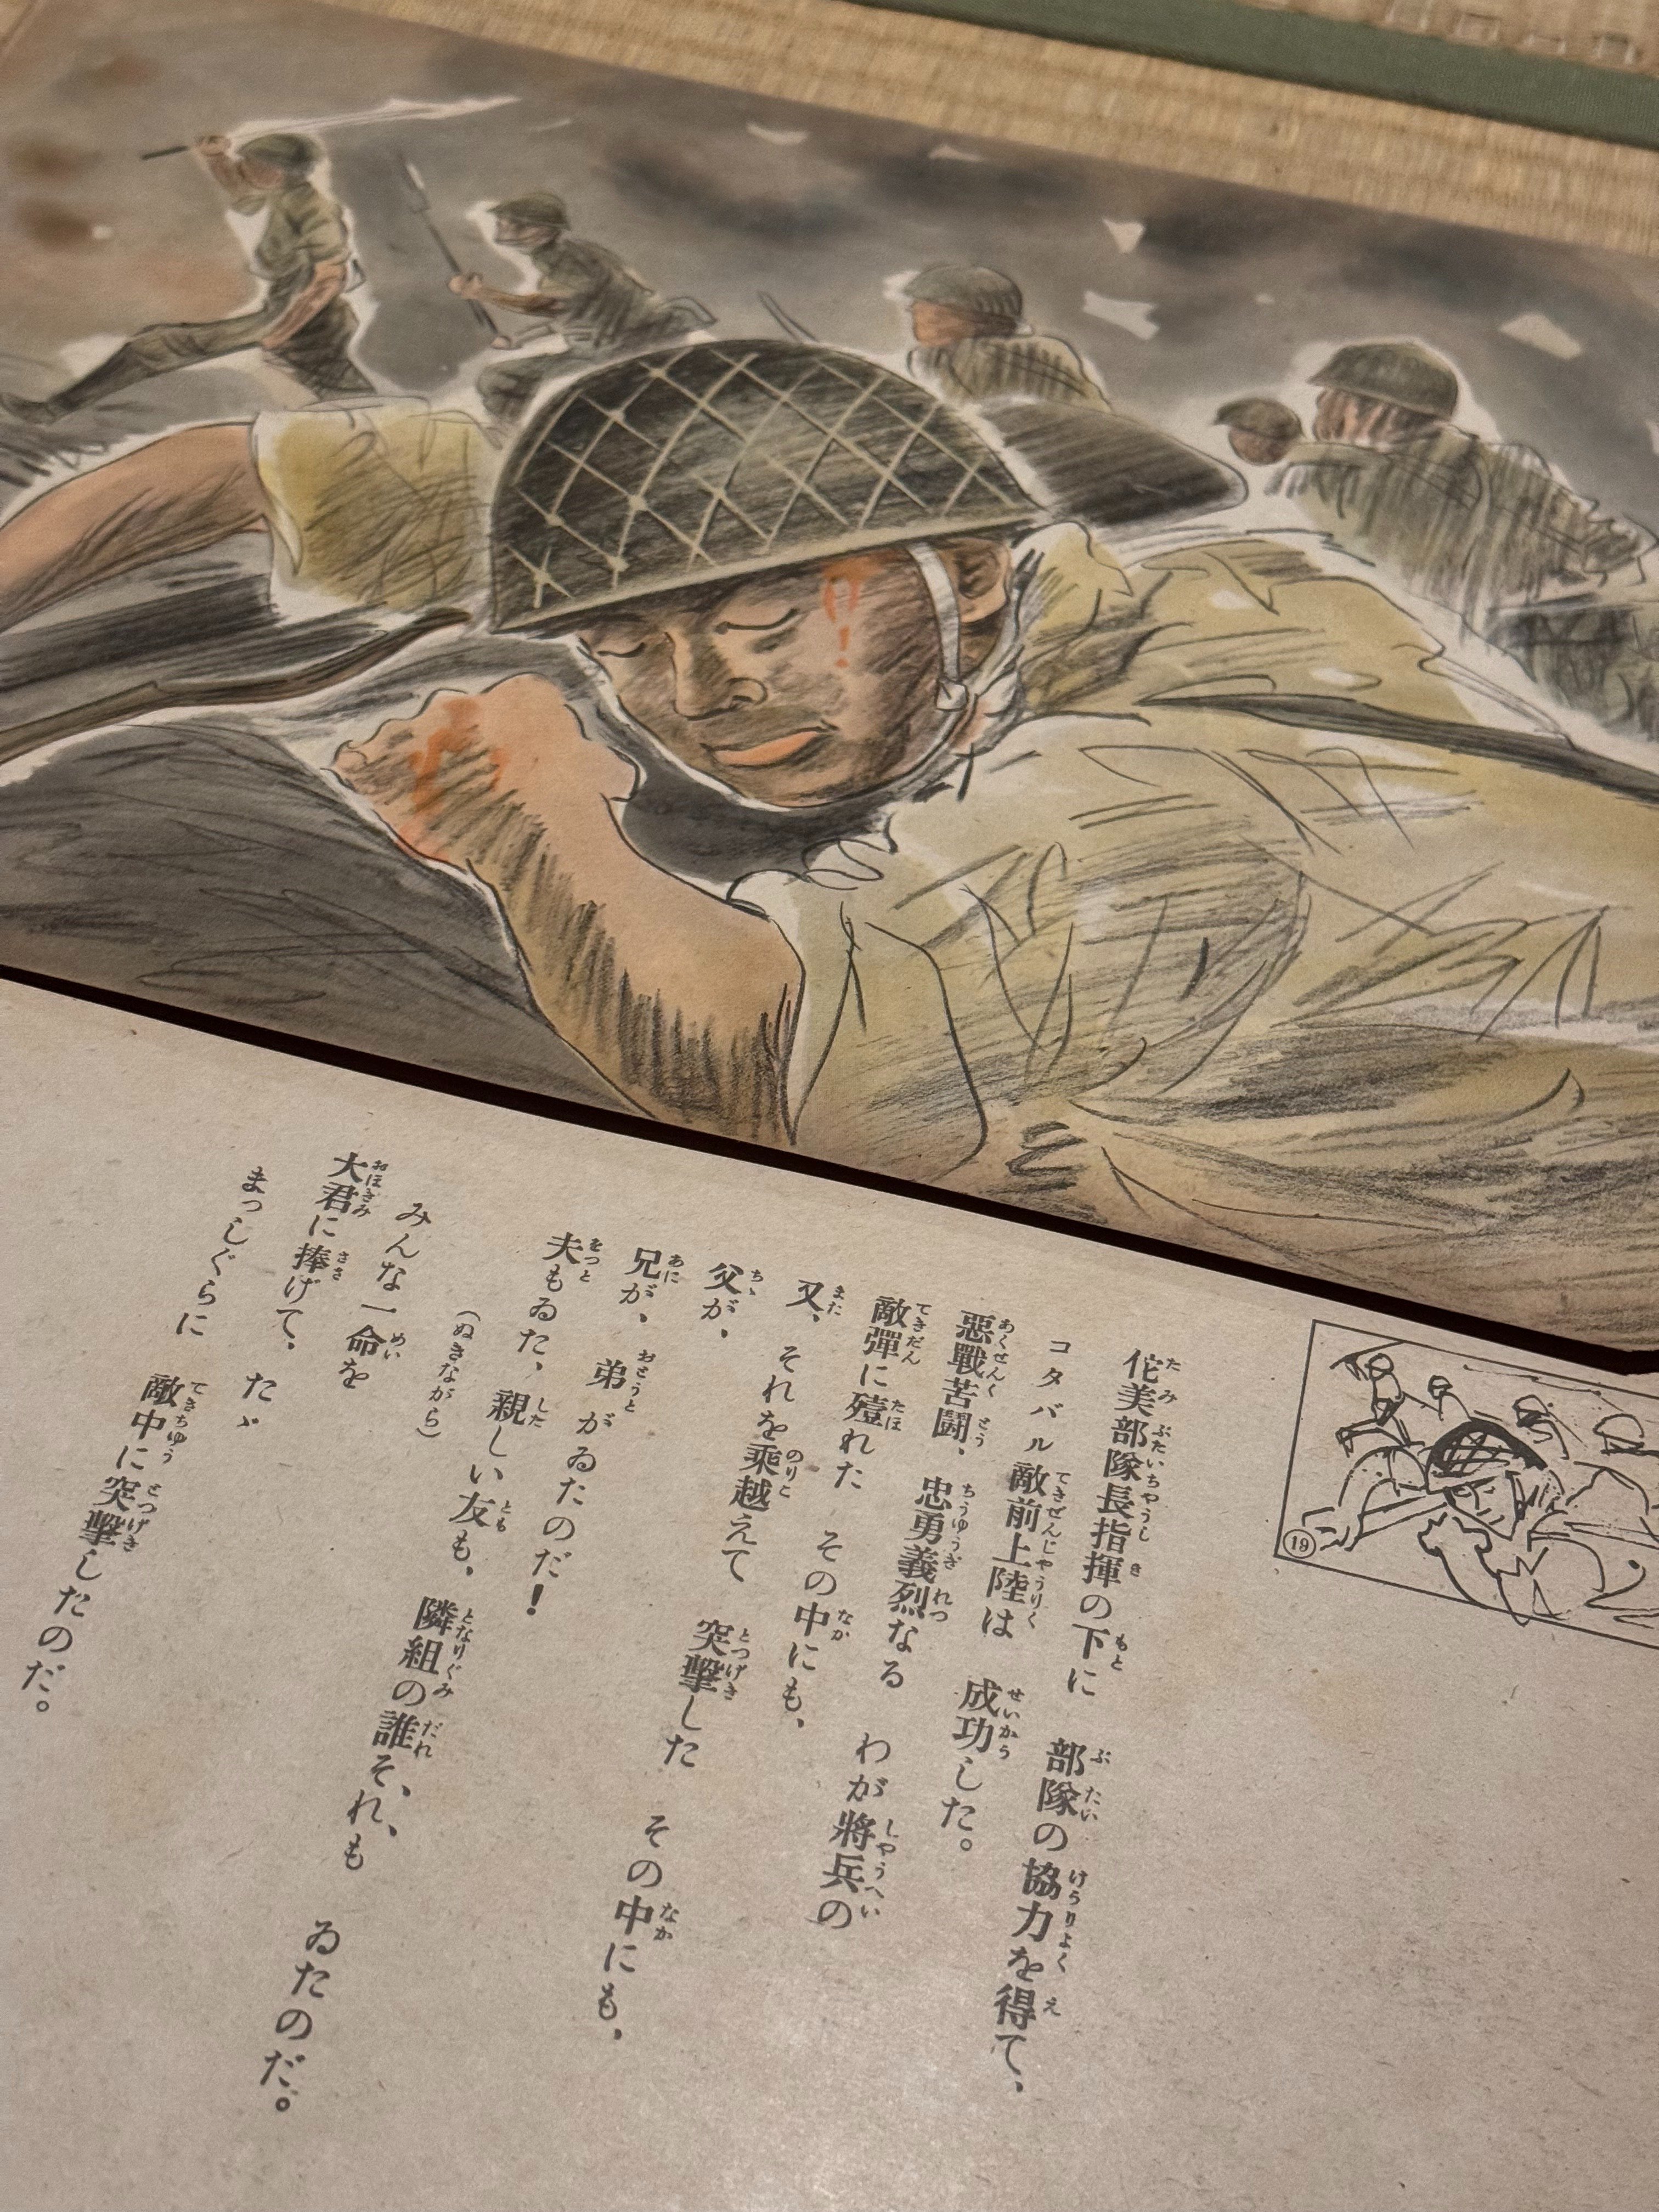 ⑲
佗美部隊長指揮の下に　部隊の協力を得て、
コタバル敵前上陸は　成功した。
惡戰苦鬪、忠勇義烈なる　わが將兵の
敵彈に殪れた　その中にも、
又、それを乘越えて　突擊した　その中にも、
父が、
兄が、弟がゐたのだ！
夫もゐた、親しい友も、隣組の誰それも　ゐたのだ。
（ぬきながら）
みんな一命を
大君に捧げて、たゞ
まつしぐらに　敵中に突擊したのだ。